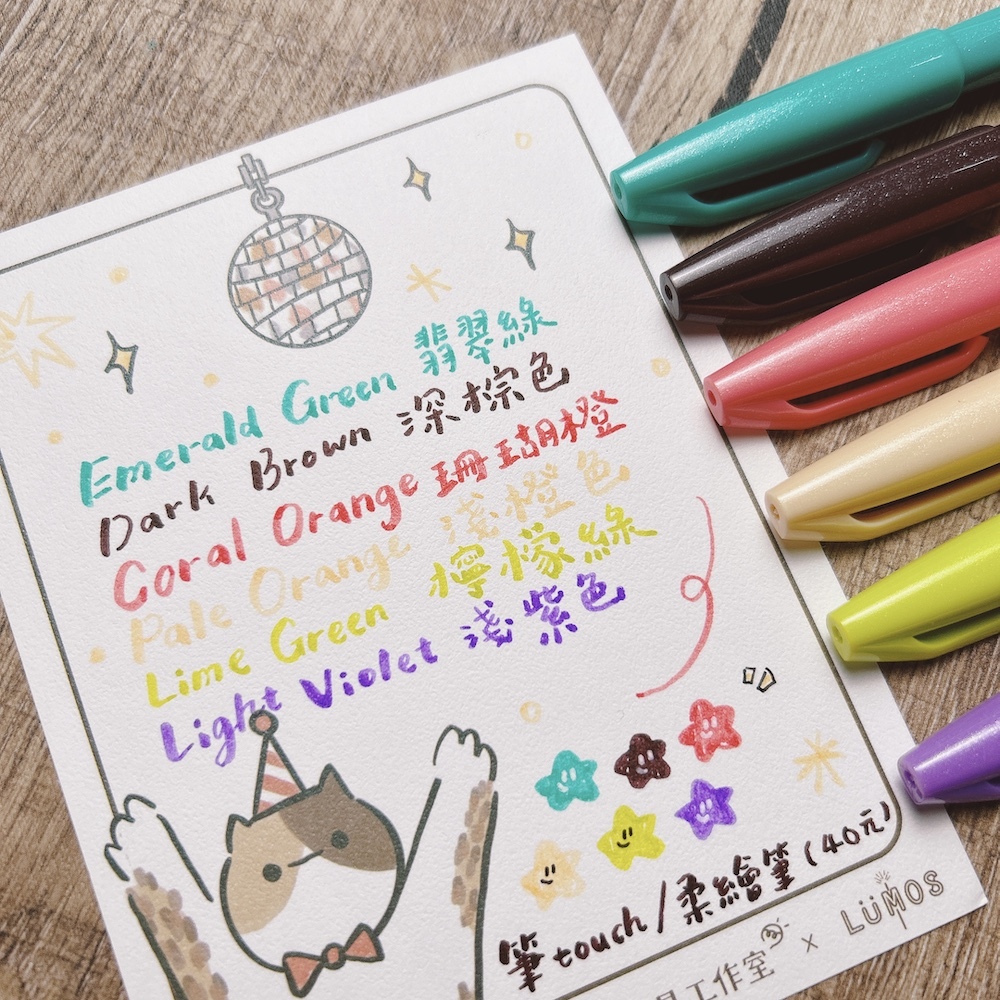 Emerald Green 翡翠綠
Dark Brown 深棕色
Coral Orange 珊瑚橙
Pale Orange 淺橙色
Lime Green 檸檬綠
Light Violet 淺紫色
筆touch/柔繪筆(40元)
工作室 x LÜMOS